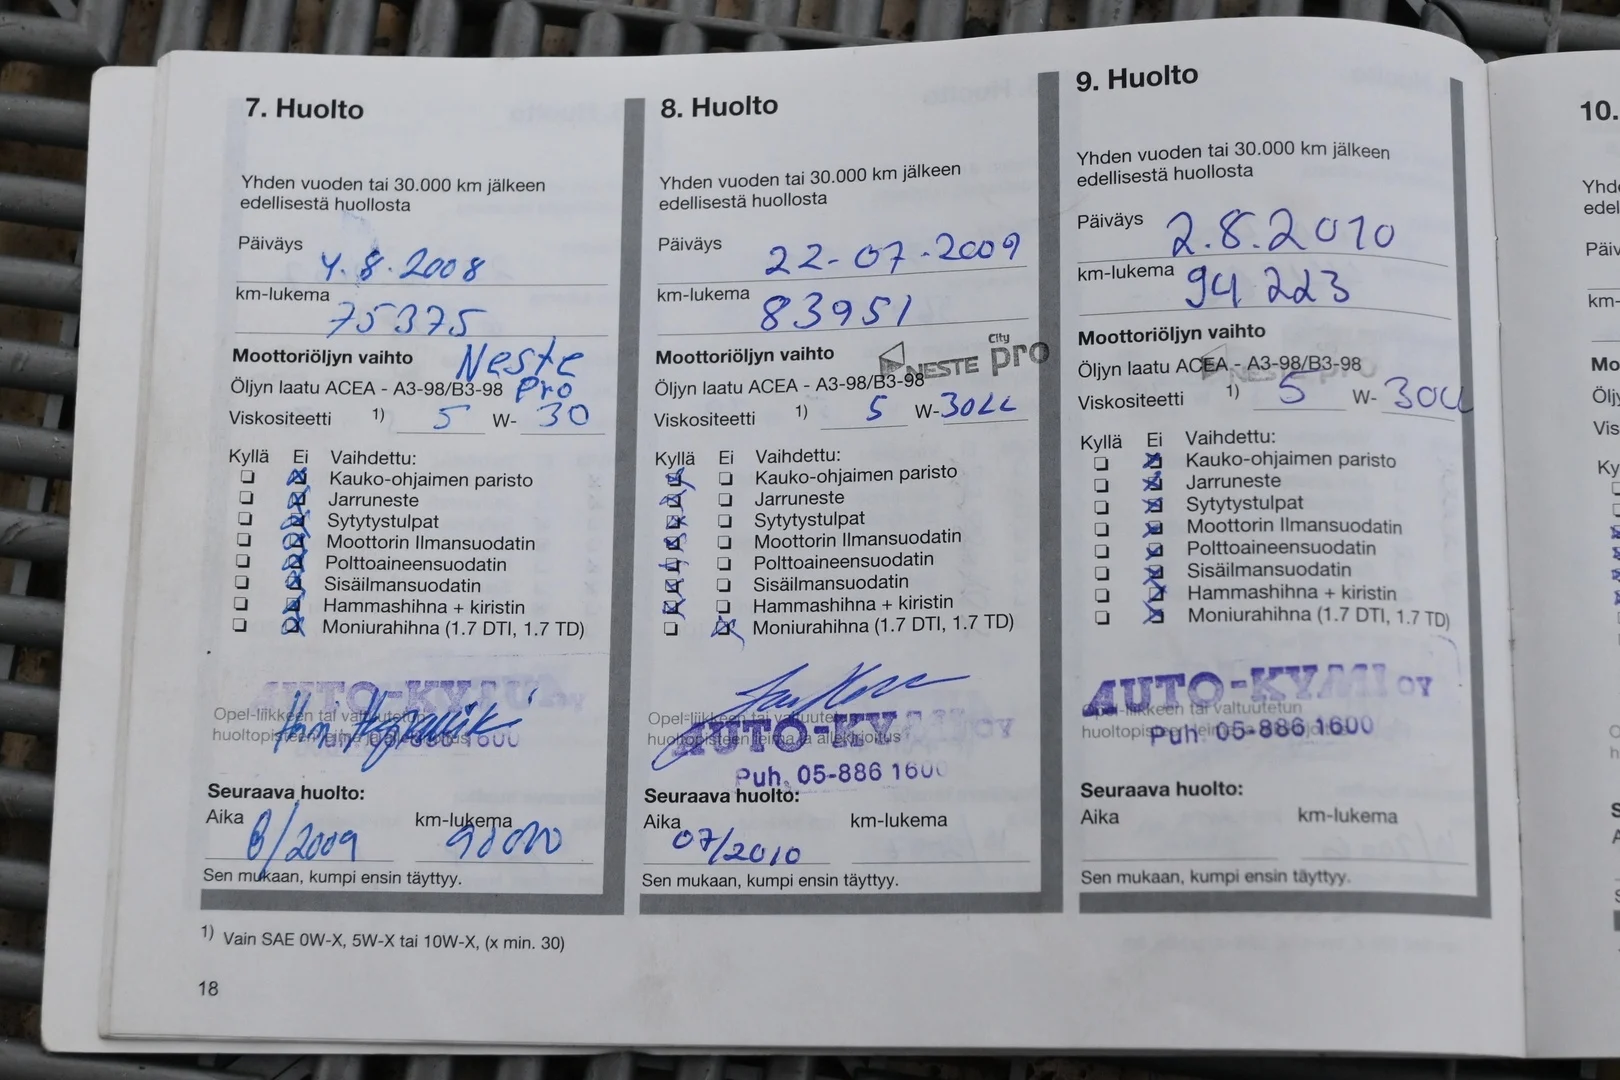 7. Huolto
Yhden vuoden tai 30.000 km jälkeen
edellisestä huollosta
Päiväys 4.8.2008
km-lukema 75375
Moottoriöljyn vaihto Neste
Öljyn laatu ACEA - A3-98/B3-98 Pro
Viskositeetti 1) 5 W- 30
Kyllä Ei Vaihdettu:
Kauko-ohjaimen paristo
Jarruneste
Sytytystulpat
Moottorin Ilmansuodatin
Polttoaineensuodatin
Sisäilmansuodatin
Hammashihna + kiristin
Moniurahihna (1.7 DTI, 1.7 TD)
AUTO-KYMI OY
Opel-liikkeen tai valtuutetun
huoltopisteen leima ja allekirjoitus
Puh. 05-886 1600
Seuraava huolto:
Aika km-lukema
8/2009 90000
Sen mukaan, kumpi ensin täyttyy.
1) Vain SAE 0W-X, 5W-X tai 10W-X, (x min. 30)
18
8. Huolto
Yhden vuoden tai 30.000 km jälkeen
edellisestä huollosta
Päiväys 22-07-2009
km-lukema 83951
Moottoriöljyn vaihto NESTE City pro
Öljyn laatu ACEA - A3-98/B3-98
Viskositeetti 1) 5 W-30LL
Kyllä Ei Vaihdettu:
Kauko-ohjaimen paristo
Jarruneste
Sytytystulpat
Moottorin Ilmansuodatin
Polttoaineensuodatin
Sisäilmansuodatin
Hammashihna + kiristin
Moniurahihna (1.7 DTI, 1.7 TD)
Opel-liikkeen tai valtuutetun
AUTO-KYMI OY
huoltopisteen leima ja allekirjoitus
Puh. 05-886 1600
Seuraava huolto:
Aika km-lukema
07/2010
Sen mukaan, kumpi ensin täyttyy.
9. Huolto
Yhden vuoden tai 30.000 km jälkeen
edellisestä huollosta
Päiväys 2.8.2010
km-lukema 94223
Moottoriöljyn vaihto
Öljyn laatu ACEA - A3-98/B3-98
NESTE pro
Viskositeetti 1) 5 W- 30LL
Kyllä Ei Vaihdettu:
Kauko-ohjaimen paristo
Jarruneste
Sytytystulpat
Moottorin Ilmansuodatin
Polttoaineensuodatin
Sisäilmansuodatin
Hammashihna + kiristin
Moniurahihna (1.7 DTI, 1.7 TD)
AUTO-KYMI OY
Opel-liikkeen tai valtuutetun
huoltopisteen leima ja allekirjoitus
Puh. 05-886 1600
Seuraava huolto:
Aika km-lukema
Sen mukaan, kumpi ensin täyttyy.
10.